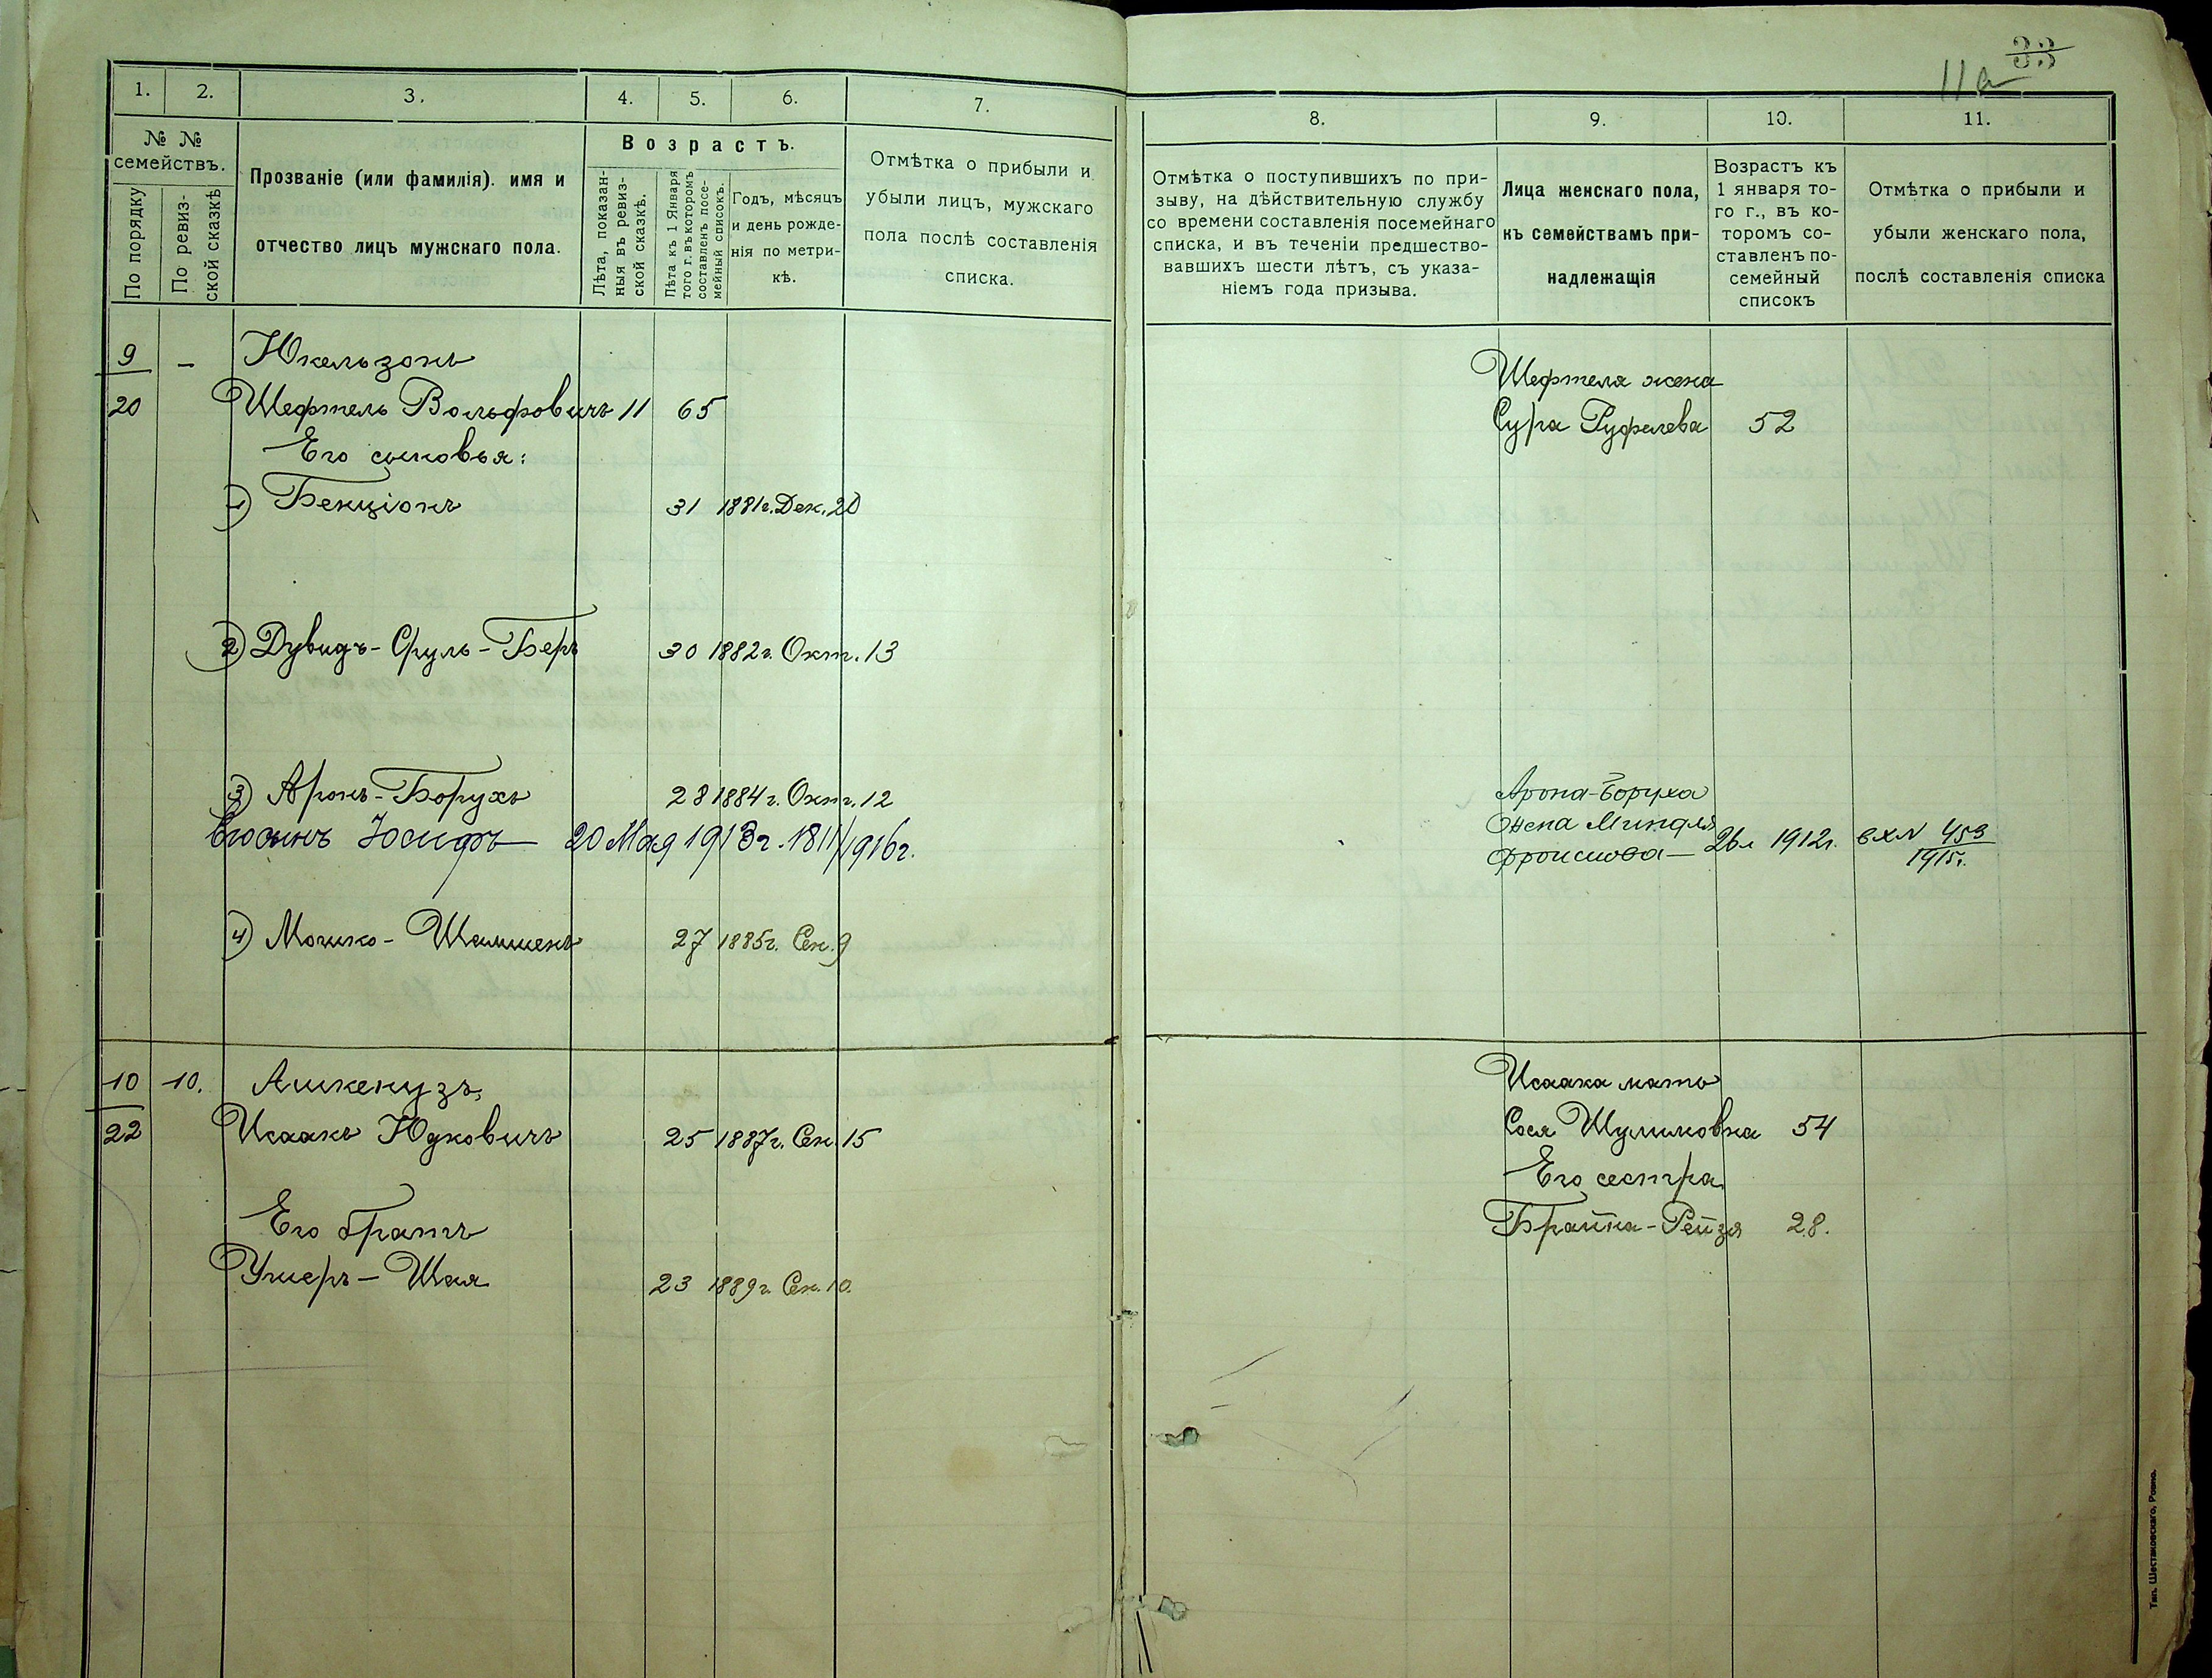 33
11а
1. 2. 3. 4. 5. 6. 7.
№ №
семействъ.
По порядку
По ревиз-
ской сказкѣ
Прозваніе (или фамилія). имя и
отчество лицъ мужскаго пола.
Возрастъ.
Лѣта, показан-
ныя въ ревиз-
ской сказкѣ.
Лѣта къ 1 Января
того г. въ которомъ
составленъ посе-
мейный списокъ.
Годъ, мѣсяцъ
и день рожде-
нія по метри-
кѣ.
Отмѣтка о прибыли и
убыли лицъ, мужскаго
пола послѣ составленія
списка.
9 — Юкельзонъ
20 Шефтель Вольфовичъ 11 65
Его сыновья:
1) Бенціонъ 31 1881г. Дек. 20
2) Дувидъ-Сруль-Беръ 30 1882г. Окт. 13
3) Аронъ-Борухъ 28 1884г. Окт. 12
Его сынъ Іосифъ — 20 Мая 1913г. 1811/1916г.
4) Мошко-Шлиоменъ 27 1885г. Сен. 9
10 10. Ашкенузъ,
22 Исаакъ Юдковичъ 25 1887г. Сен. 15
Его братъ
Ушеръ-Шая 23 1889г. Сен. 10.
8. 9. 10. 11.
Отмѣтка о поступившихъ по при-
зыву, на дѣйствительную службу
со времени составленія посемейнаго
списка, и въ теченіи предшество-
вавшихъ шести лѣтъ, съ указа-
ніемъ года призыва.
Лица женскаго пола,
къ семействамъ при-
надлежащія
Возрастъ къ
1 января то-
го г., въ ко-
торомъ со-
ставленъ по-
семейный
списокъ
Отмѣтка о прибыли и
убыли женскаго пола,
послѣ составленія списка
Шефтеля жена
Сура Руфелева 52
Арона-Боруха
жена Миндля
Фроимова — 26л 1912г. вх N 453
1915г.
Исаака мать
Сося Шулимовна 54
Его сестра
Брайна-Рейзя 28.
Тип. Шестаковскаго, Ровно.